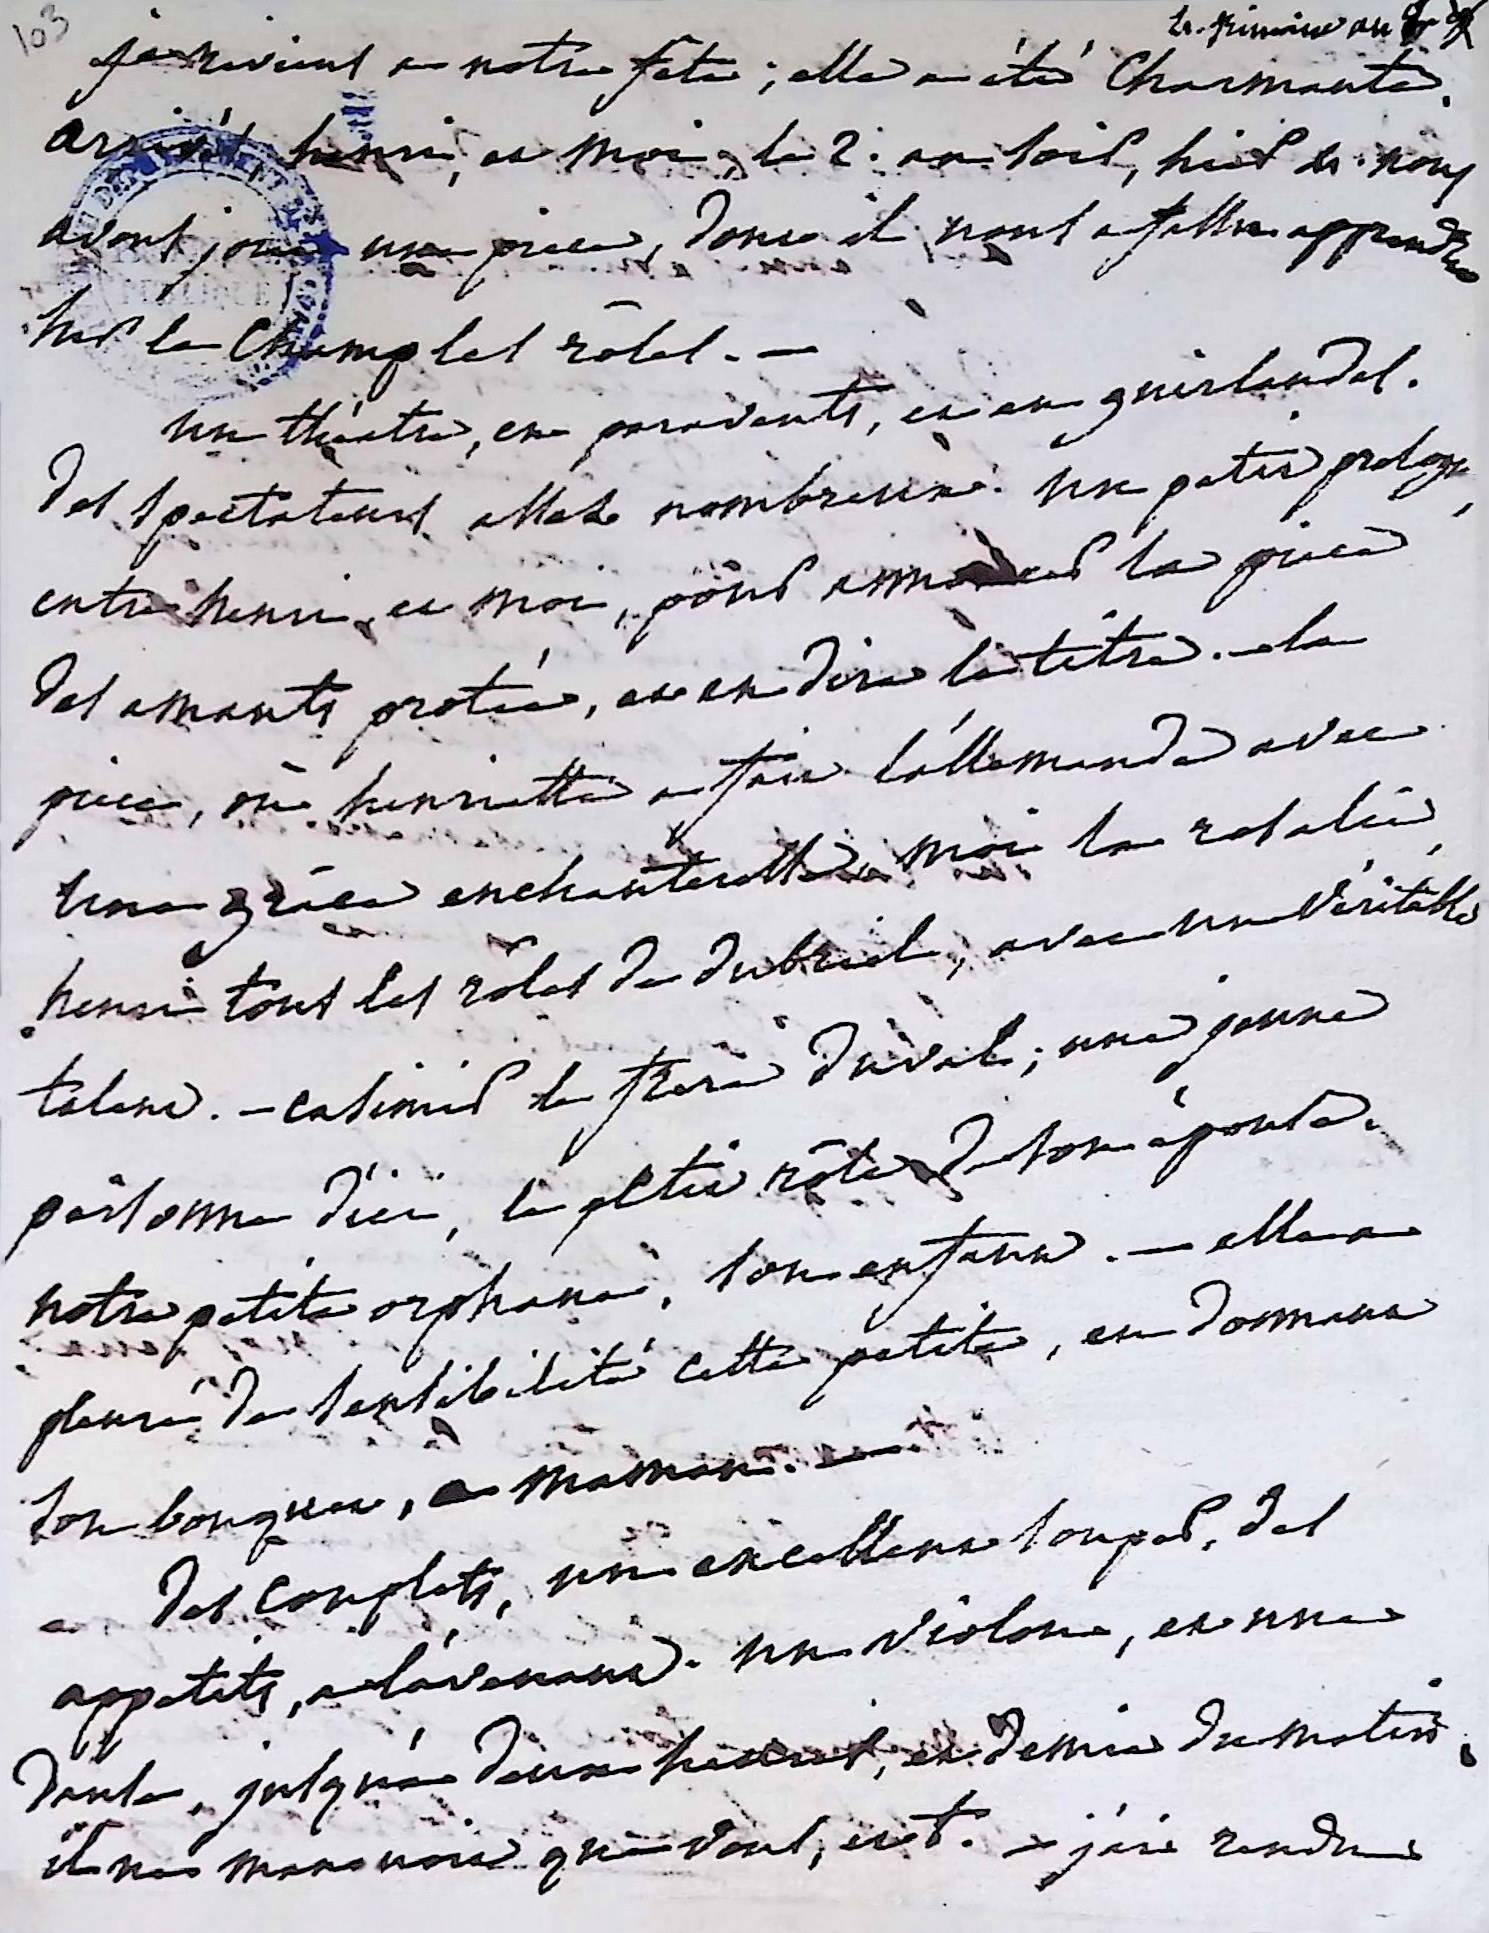 103
frimaire an
je reviens a notre fête; elle a été charmante.
arrivés henri, et moi, le 2. au soir, hier nous
avons joué une piece, dont il nous a fallu apprendre
sur le champ les rôles. —
un théatre, en paravents, et en guirlandes.
des spectateurs assez nombreux. un petit prologue,
entre henri, et moi, pour annoncer la piece
des amants protée, et en dire le titre. — la
piece, où henriette a fait l'allemande avec
une grâce enchanteresse, moi la rosalie,
henri tous les rôles de dubreuil, avec un véritable
talent. — casimir le frere duval; une jeune
personne d'ici, le petit rôle de son épouse.
notre petite orpheline, son enfant. — elle a
pleuré de sensibilité cette petite, en donnant
son bouquet, a maman. —
des couplets, un excellent souper, des
appetits, a l'avenant. un violon, et une
danse, jusqu'a deux heures, et demie du matin.
il ne manquoit que vous, et . — j'ai rendu